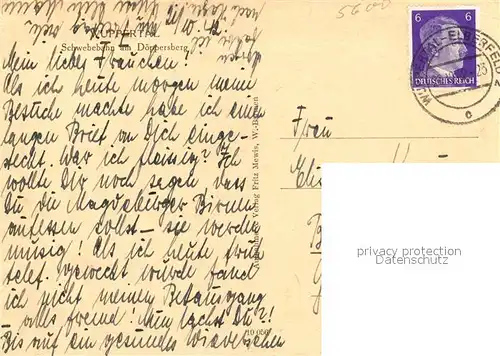 WUPPERTAL
Schwebebahn am Döppersberg
20/10. 42
Mein liebes Frauchen!
Als ich heute morgen meine
Besuche machte habe ich einen
langen Brief an Dich einge-
steckt. War ich fleissig? Ich
wollte Dir noch sagen dass
Du die Magdeburger Birnen
aufessen sollst - sie werden
musig! Als ich heute früh
telef. geweckt wurde fand
ich nicht meinen Betausgang
- alles fremd! Nun lachst Du?!
Bis auf ein gesundes Wiedersehen
Verlag Fritz Mewis, W.-Barmen
6 6
DEUTSCHES REICH
WUPPERTAL-ELBERFELD
c
Frau
privacy protection